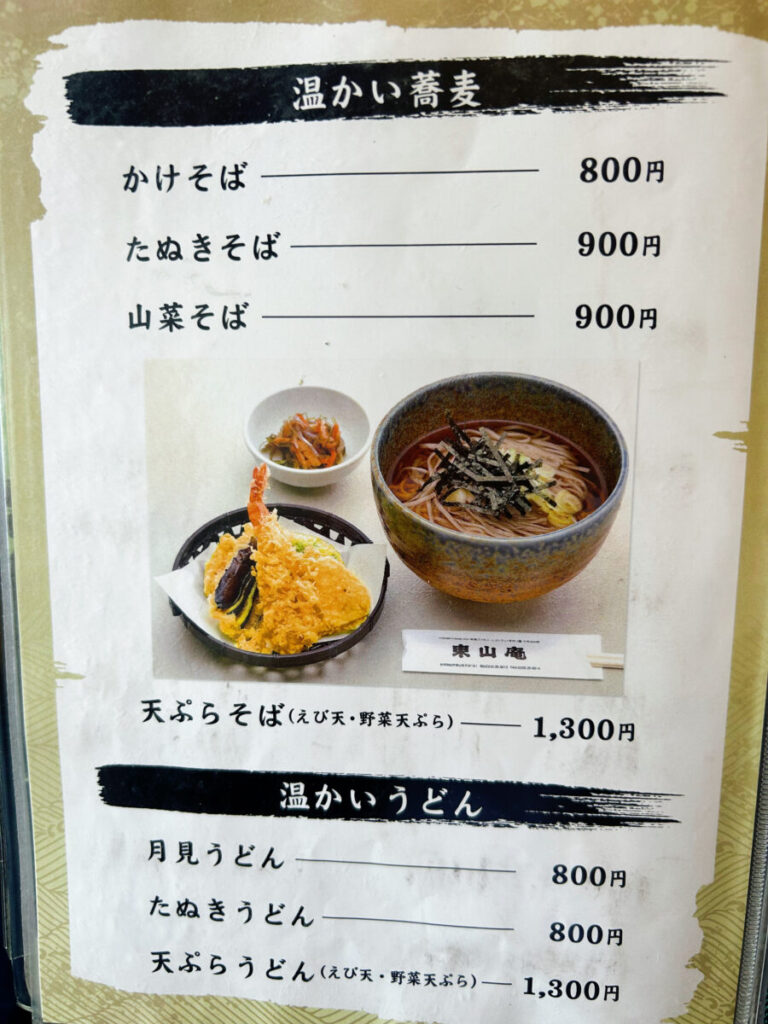 温かい蕎麦
かけそば 800円
たぬきそば 900円
山菜そば 900円
東山庵
天ぷらそば(えび天・野菜天ぷら) 1,300円
温かいうどん
月見うどん 800円
たぬきうどん 800円
天ぷらうどん(えび天・野菜天ぷら) 1,300円